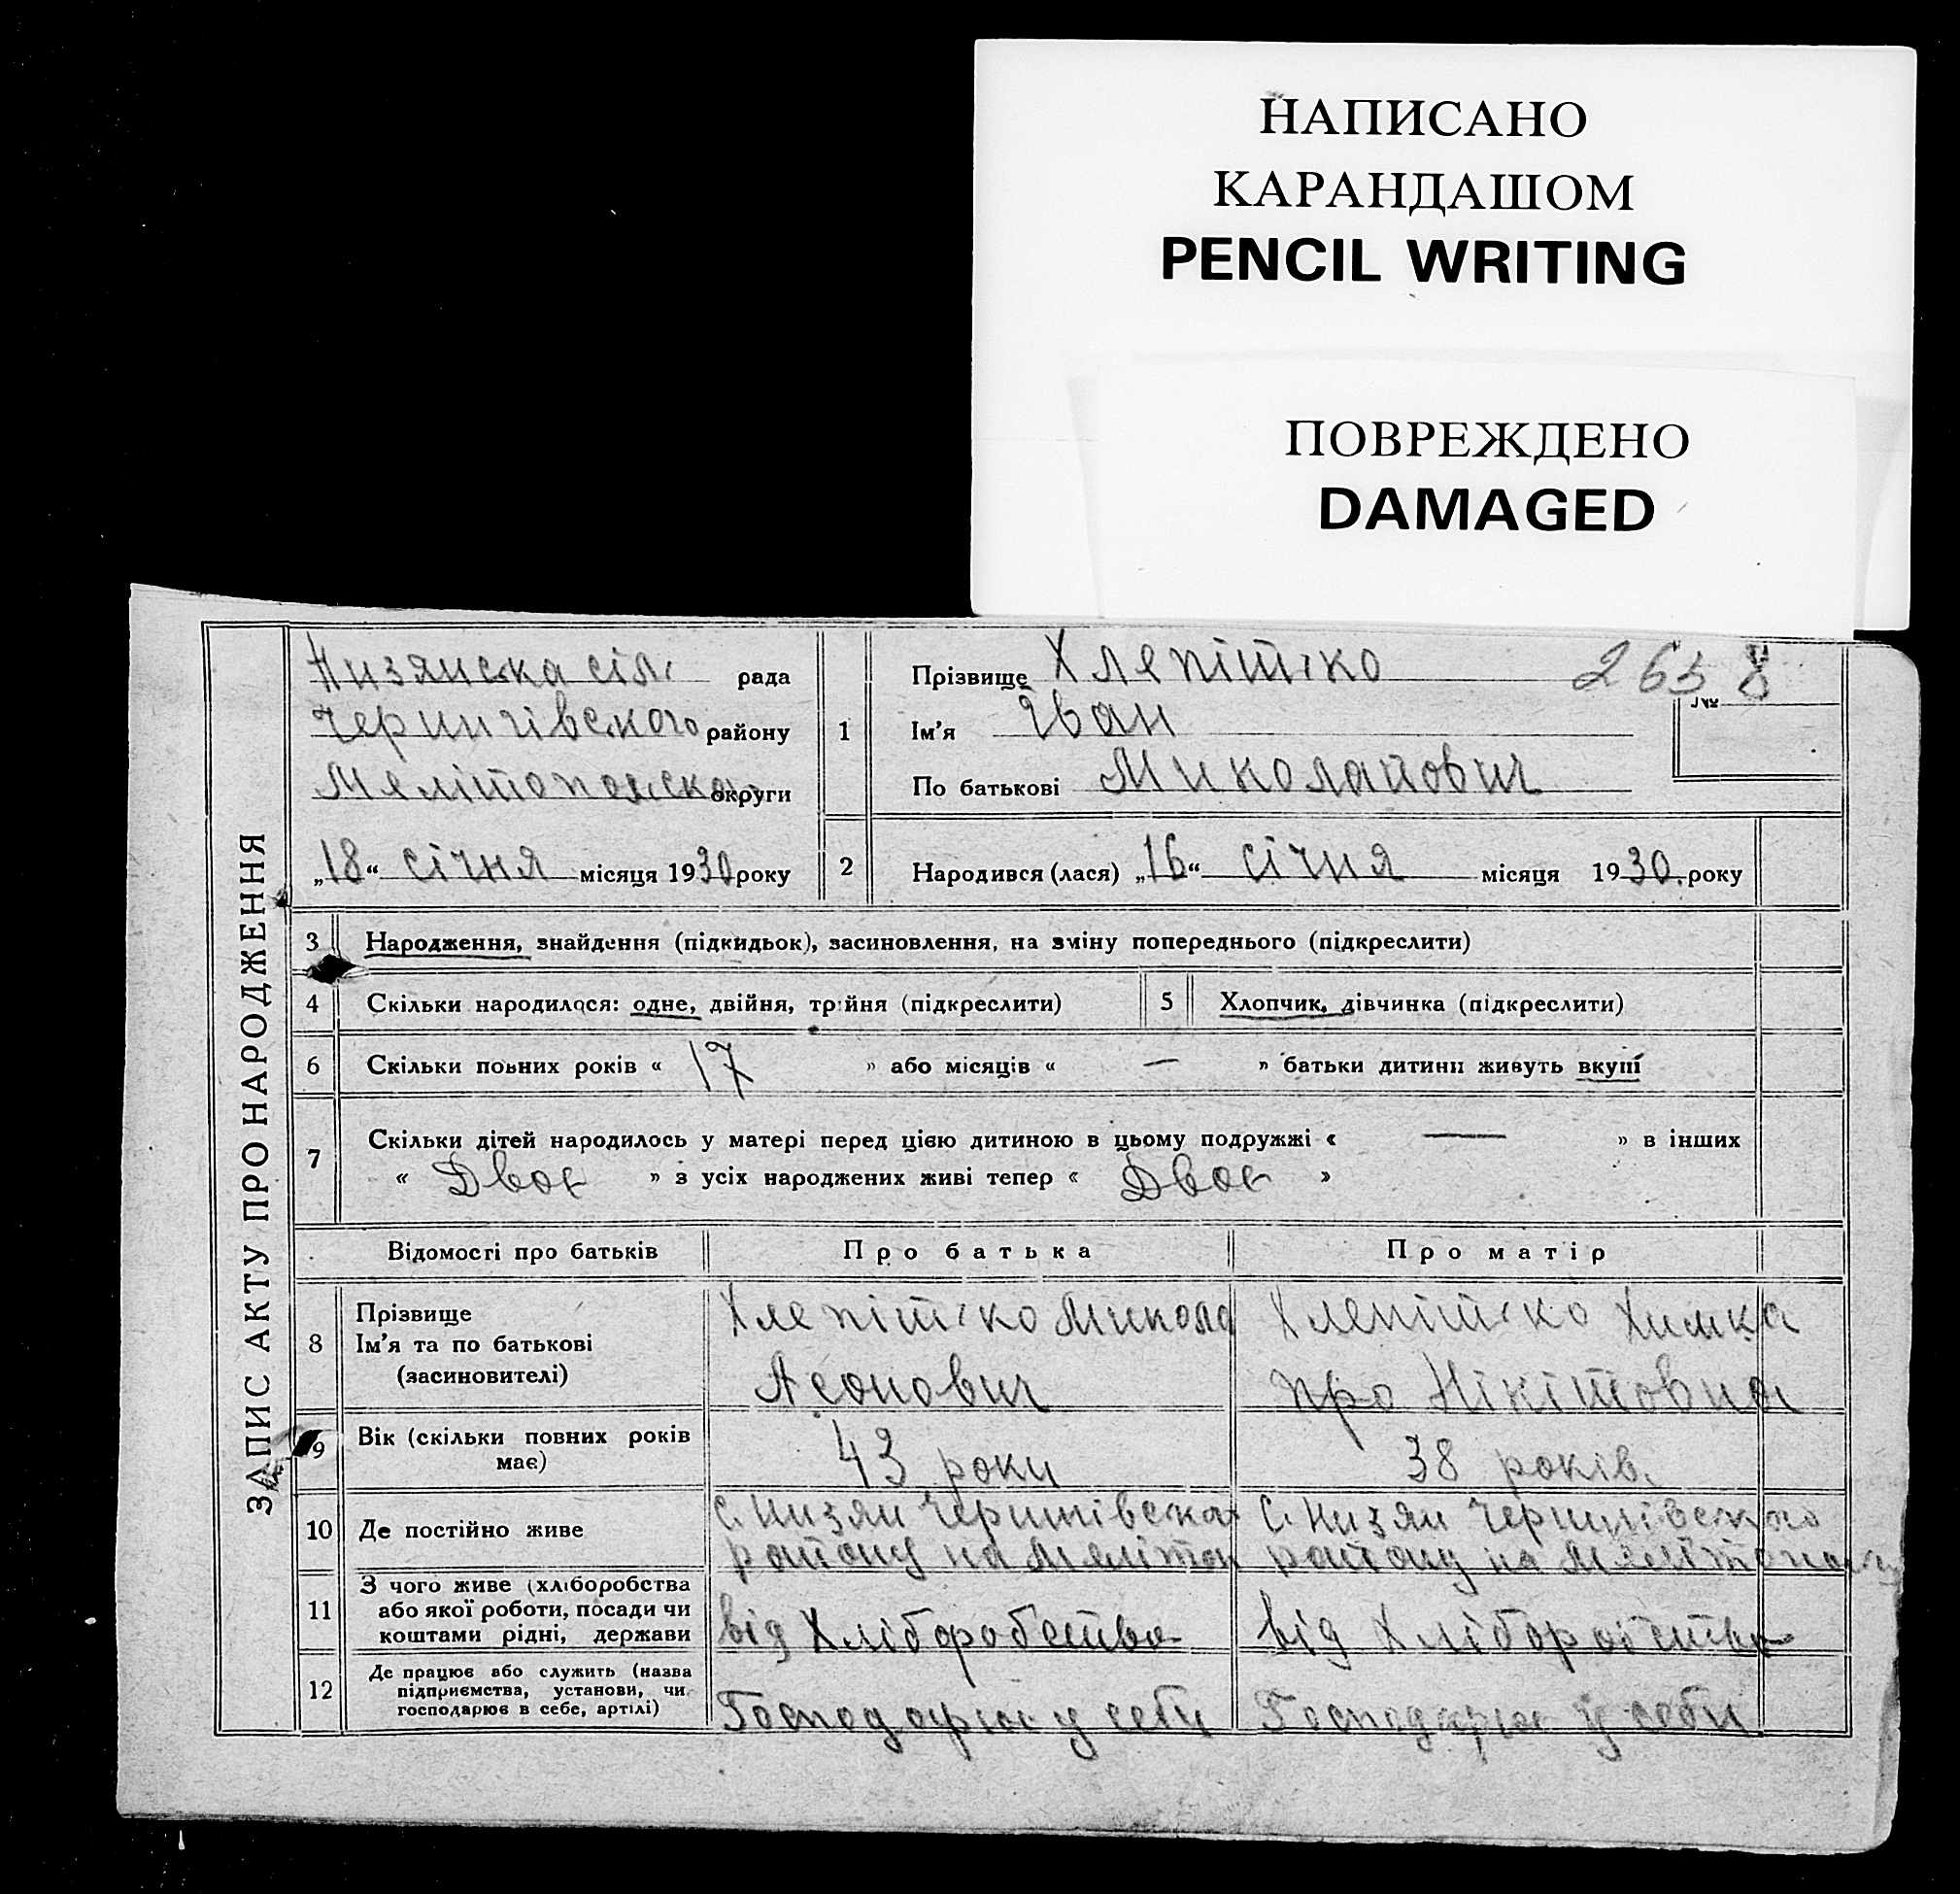 НАПИСАНО
КАРАНДАШОМ
PENCIL WRITING
ПОВРЕЖДЕНО
DAMAGED
ЗАПИС АКТУ ПРО НАРОДЖЕННЯ
Низянська сіль рада
Чернигівского району
Мелітопольска округи
„18“ січня місяця 1930 року
1
Прізвище Хлепітько
Ім'я Іван
По батькові Миколайович
265 8
№
2
Народився (лася) „16“ січня місяця 1930. року
3 Народження, знайдення (підкидьок), засиновлення, на зміну попереднього (підкреслити)
4 Скільки народилося: одне, двійня, трійня (підкреслити) 5 Хлопчик, дівчинка (підкреслити)
6 Скільки повних років « 17 » або місяців « — » батьки дитини живуть вкупі
7 Скільки дітей народилось у матері перед цією дитиною в цьому подружжі « — » в інших
« Двоє » з усіх народжених живі тепер « Двоє »
Відомості про батьків Про батька Про матір
8 Прізвище
Ім'я та по батькові
(засиновителі)
Хлепітько Микола
Хлепітько Химка
про Нікітовна
9 Вік (скільки повних років
має)
43 роки
38 років.
10 Де постійно живе
с. Низян Чернигівска
району на Мелітоп
с. Низян Чернигівского
району на Мелітополь
11 З чого живе (хліборобства
або якої роботи, посади чи
коштами рідні, держави
від Хліборобства
від Хліборобства
12 Де працює або служить (назва
підприємства, установи, чи
господарює в себе, артілі)
Господарює у себи
Господарює у себи